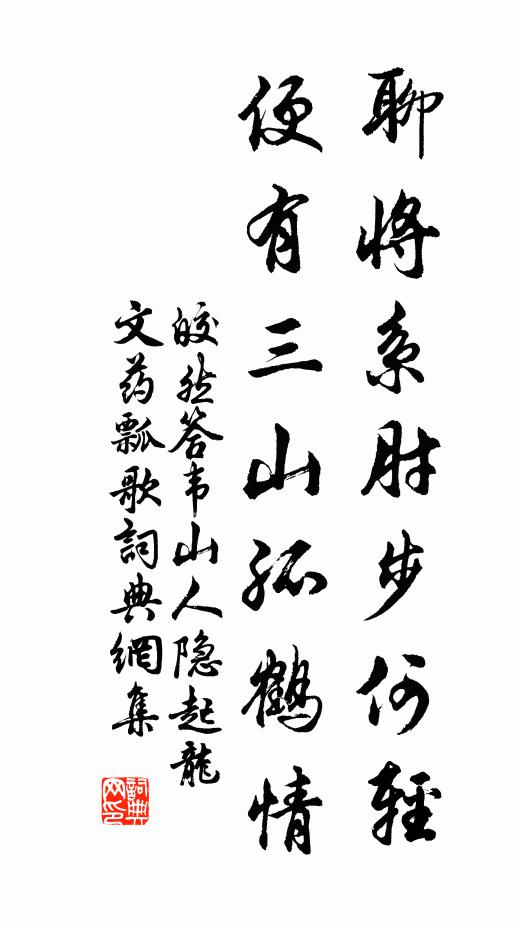 聊將系肘步何輕
便有三山孤鶴情
皎然答韦山人隐起龍
文药瓢歌詞典網集
詞典
网印